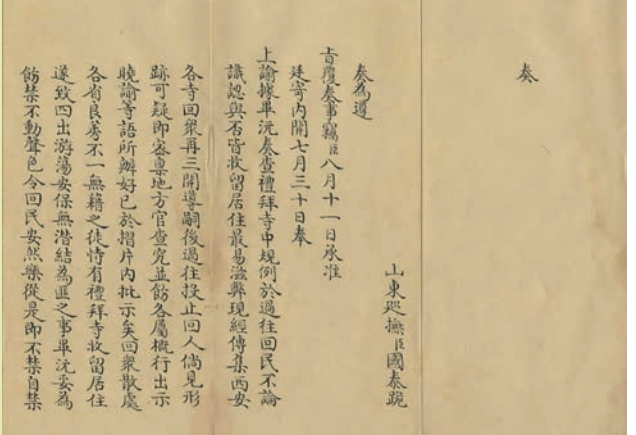 奏
山東巡撫臣國泰跪
奏為遵
旨覆奏事竊臣八月十一日承准
廷寄內開七月三十日奉
上諭據畢沅奏查禮拜寺中規例於過往回民不論
識認與否皆收留居住最易滋弊現經傳集西安
各寺回衆再三開導嗣後過往投止回人倘見形
跡可疑即密稟地方官查究並飭各屬概行出示
曉諭等語所辦好已於摺片內批示矣回衆散處
各省良莠不一無籍之徒恃有禮拜寺收留居住
遂致四出游蕩安保無潛結為匪之事畢沅妥為
飭禁不動聲色令回民安然樂從是即不禁自禁